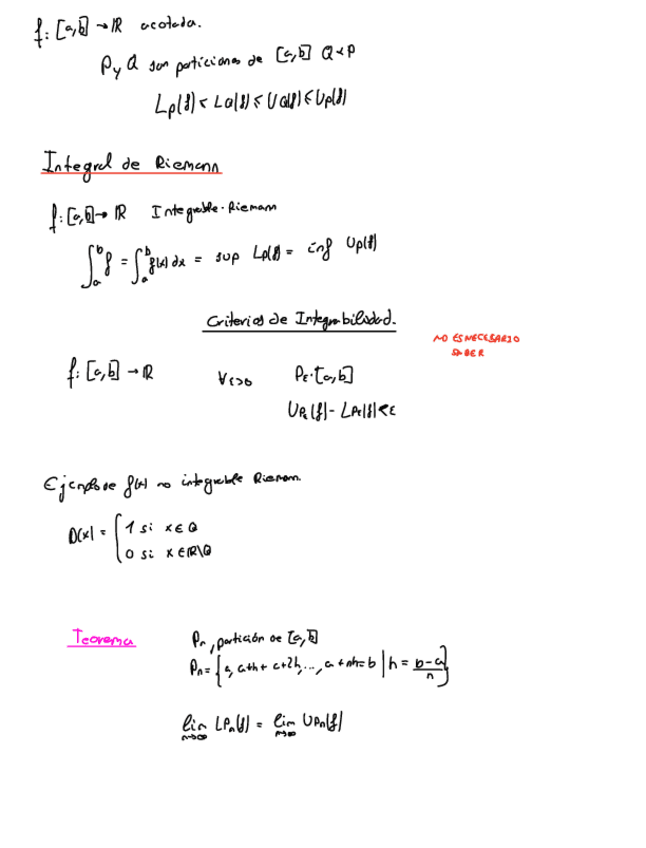 f: [a,b] → ℝ acotada.
P y Q son particiones de [a,b] Q < P
L_P(f) ≤ L_Q(f) ≤ U_Q(f) ≤ U_P(f)
Integral de Riemann
f: [a,b] → ℝ Integrable-Riemann
∫_a^b f = ∫_a^b f(x) dx = sup L_P(f) = inf U_P(f)
Criterios de Integrabilidad.
NO ES NECESARIO
SABER
f: [a,b] → ℝ ∀ε>0 P_ε·[a,b]
U_{Pε}(f) - L_{Pε}(f) < ε
Ejemplos de f(x) no integrable Riemann.
D(x) = { 1 si x ∈ ℚ
0 si x ∈ ℝ\ℚ
Teorema
P_n, partición de [a,b]
P_n = {a, a+h, a+2h, ..., a+nh=b | h = (b-a)/n}
lim_{n→∞} L_{Pn}(f) = lim_{n→∞} U_{Pn}(f)